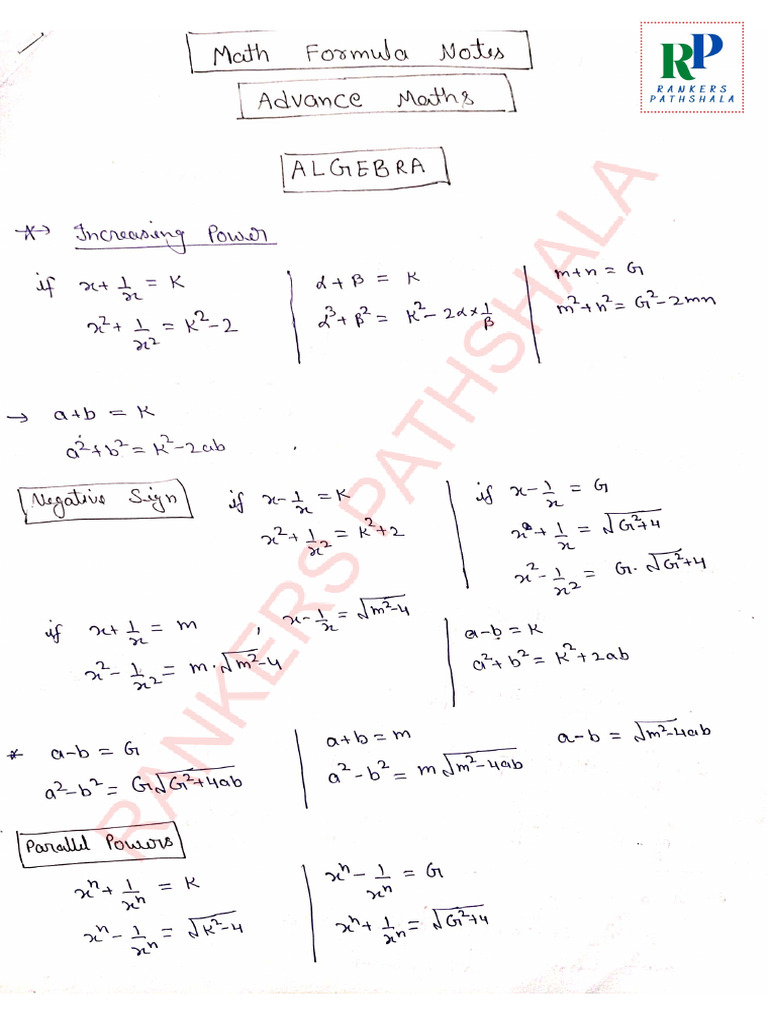 Math Formula Notes
RP
RANKERS
PATHSHALA
Advance Maths
ALGEBRA
*→ Increasing Power
if x + 1/x = K
x² + 1/x² = K² - 2
α + β = K
α³ + β² = K² - 2α × 1/β
m + n = G
m² + n² = G² - 2mn
→ a + b = K
a² + b² = K² - 2ab
Negative Sign
if x - 1/x = K
x² + 1/x² = K² + 2
if x - 1/x = G
x + 1/x = √(G² + 4)
x² - 1/x² = G · √(G² + 4)
if x + 1/x = m , x - 1/x = √(m² - 4)
x² - 1/x² = m · √(m² - 4)
a - b = K
a² + b² = K² + 2ab
* a - b = G
a² - b² = G√(G² + 4ab)
a + b = m a - b = √(m² - 4ab)
a² - b² = m√(m² - 4ab)
Parallel Powers
xⁿ + 1/xⁿ = K
xⁿ - 1/xⁿ = √(K² - 4)
xⁿ - 1/xⁿ = G
xⁿ + 1/xⁿ = √(G² + 4)
RANKERS PATHSHALA